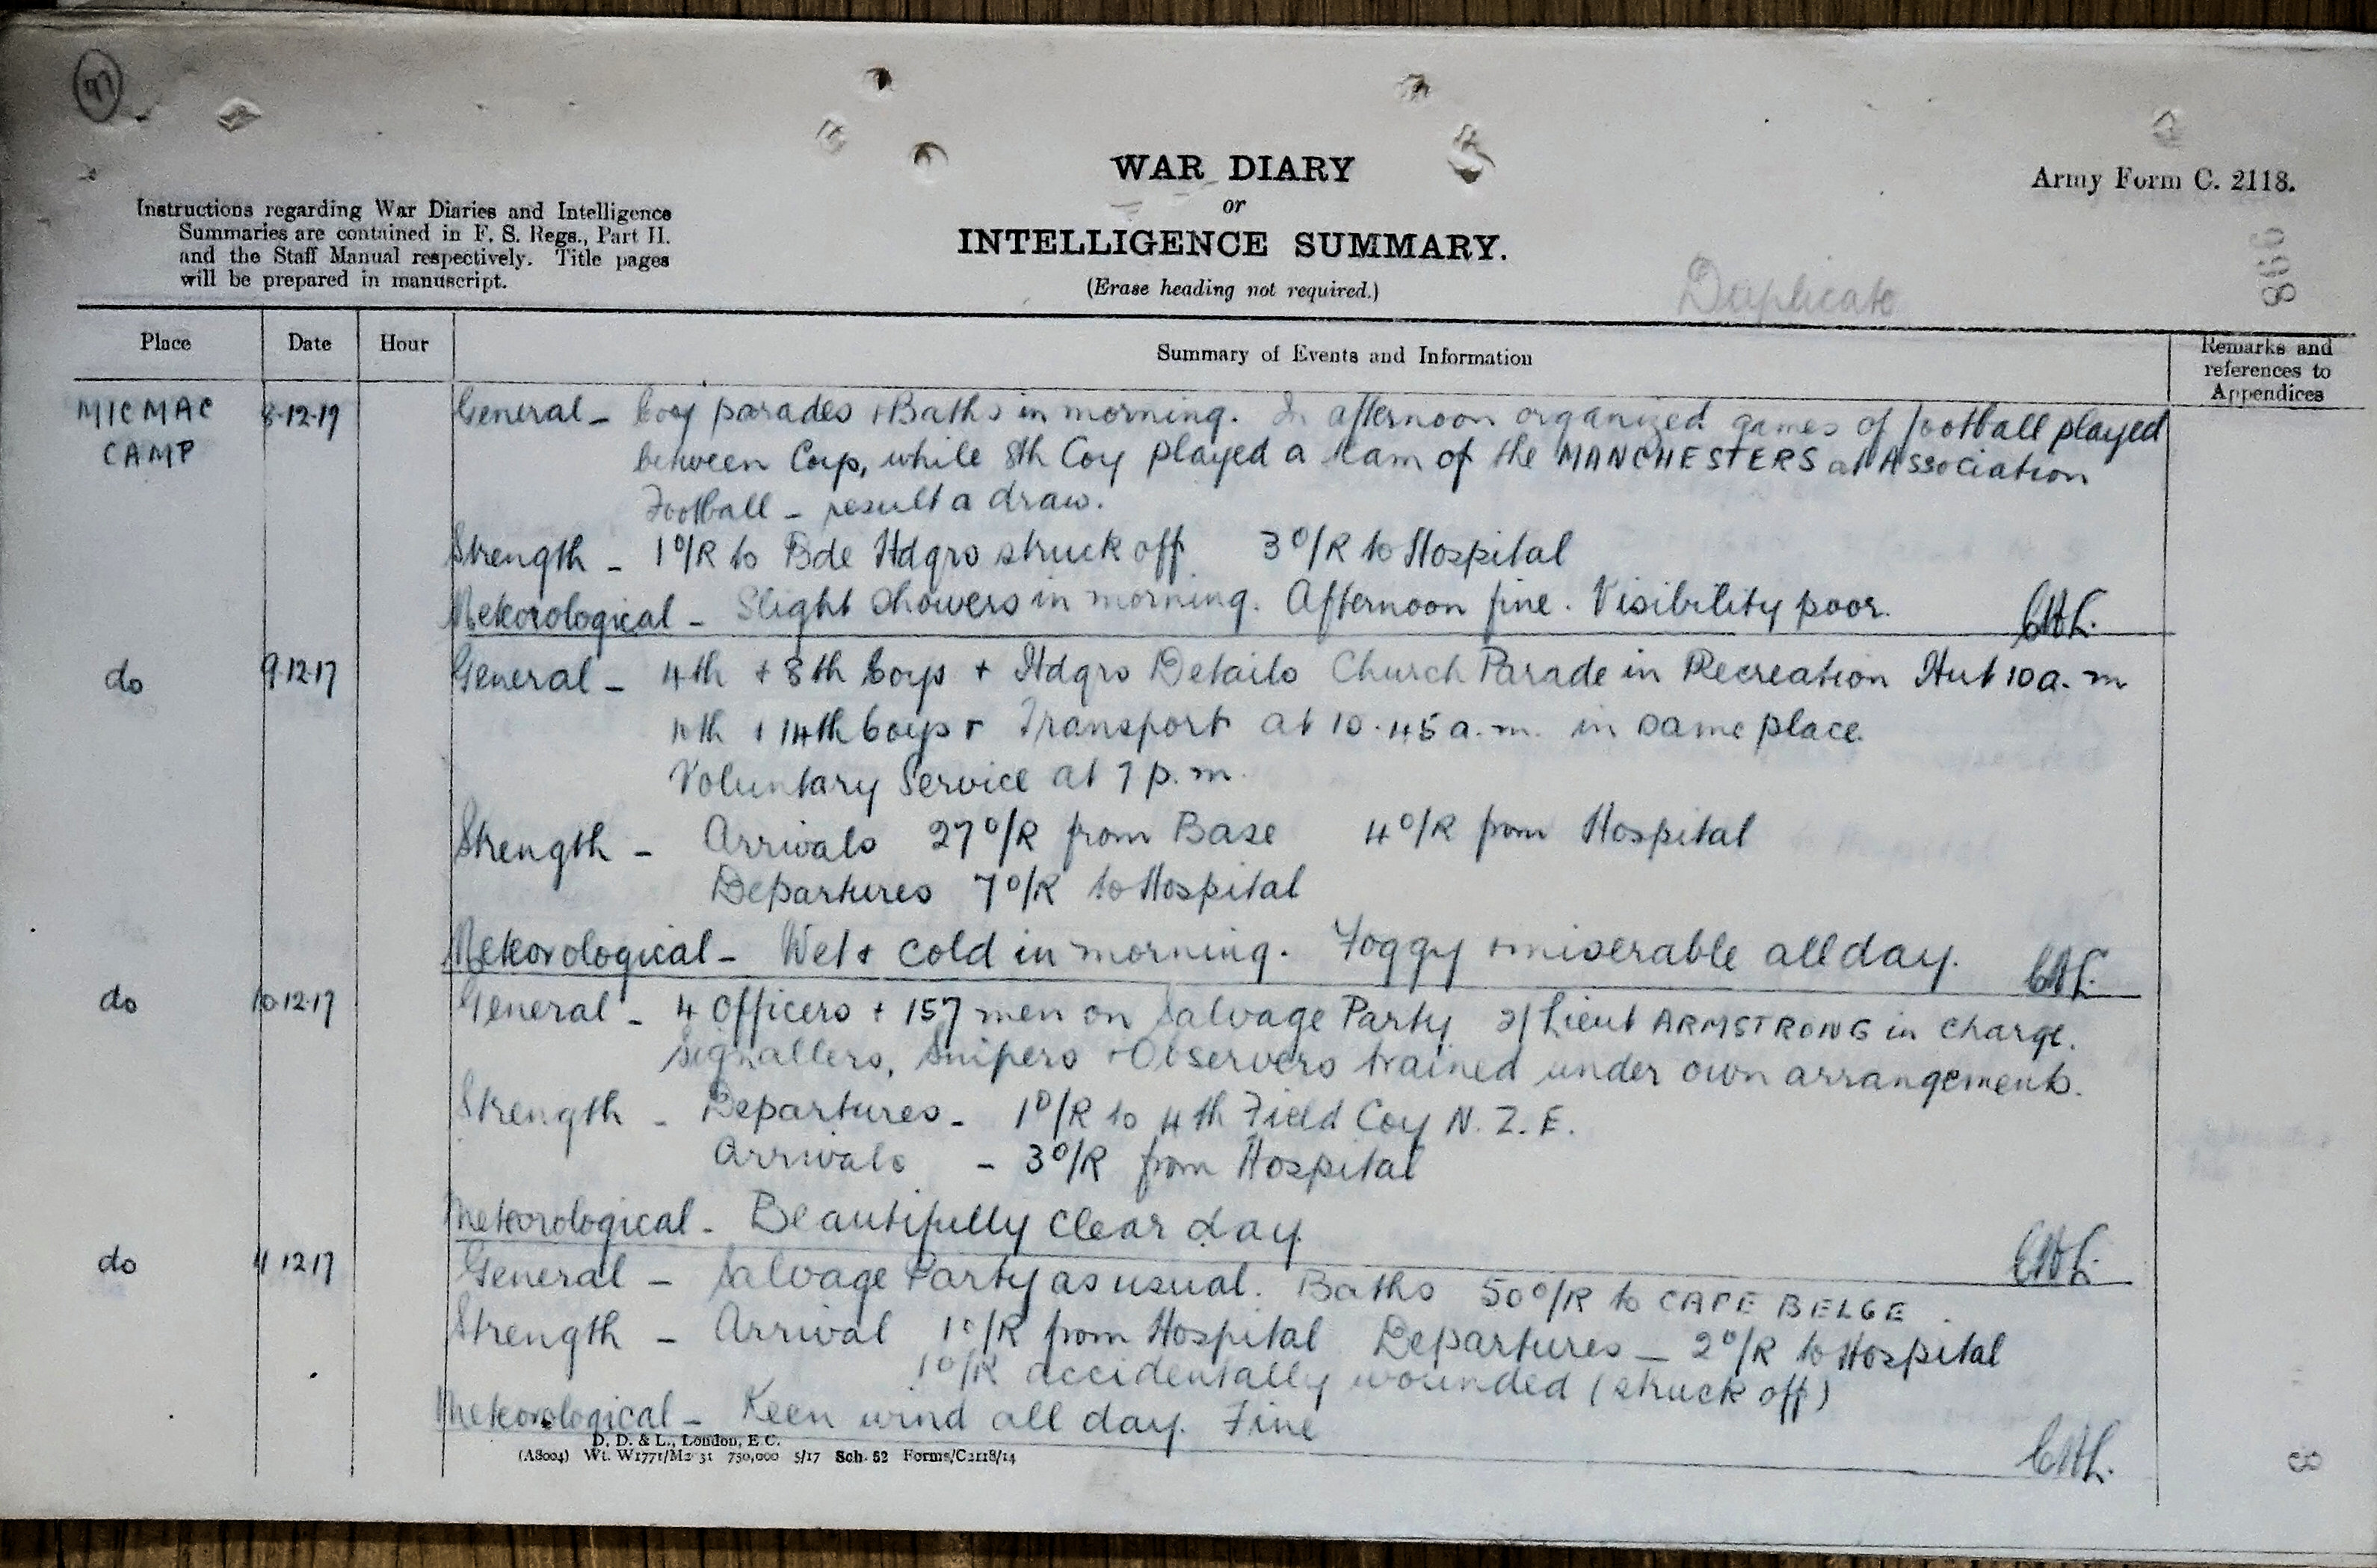 97
WAR DIARY
or
INTELLIGENCE SUMMARY.
(Erase heading not required.)
Army Form C. 2118.
Instructions regarding War Diaries and Intelligence
Summaries are contained in F. S. Regs., Part II.
and the Staff Manual respectively. Title pages
will be prepared in manuscript.
Duplicate
866
Place Date Hour Summary of Events and Information Remarks and
references to
Appendices
MICMAC 8-12-17 General - Coy parades + Baths in morning. In afternoon organized games of football played
CAMP between Coys, while 8th Coy played a team of the MANCHESTERS at Association
Football - result a draw.
Strength - 1 O/R to Bde Hdqrs struck off 3 O/R to Hospital
Meteorological - Slight showers in morning. Afternoon fine. Visibility poor.
do 9.12.17 General - 4th + 8th Coys + Hdqrs Details Church Parade in Recreation Hut 10 a.m
10th + 14th Coys + Transport at 10.45 a.m. in same place.
Voluntary Service at 7 p.m.
Strength - Arrivals 27 O/R from Base 4 O/R from Hospital
Departures 7 O/R to Hospital
Meteorological - Wet + cold in morning. Foggy + miserable all day.
do 10.12.17 General - 4 Officers + 157 men on Salvage Party 2/Lieut ARMSTRONG in charge.
Signallers, Snipers + Observers trained under own arrangements.
Strength - Departures - 1 O/R to 4th Field Coy N. Z. E.
Arrivals - 3 O/R from Hospital
Meteorological - Beautifully clear day.
do 11 12 17 General - Salvage Party as usual. Baths 50 O/R to CAFE BELGE.
Strength - Arrival 1 O/R from Hospital Departures - 2 O/R to Hospital
1 O/R accidentally wounded (struck off)
Meteorological - Keen wind all day. Fine
D. D. & L., London, E.C.
(A8004) Wt. W1771/M2 31 750,000 5/17 Sch. 52 Forms/C2118/14
8